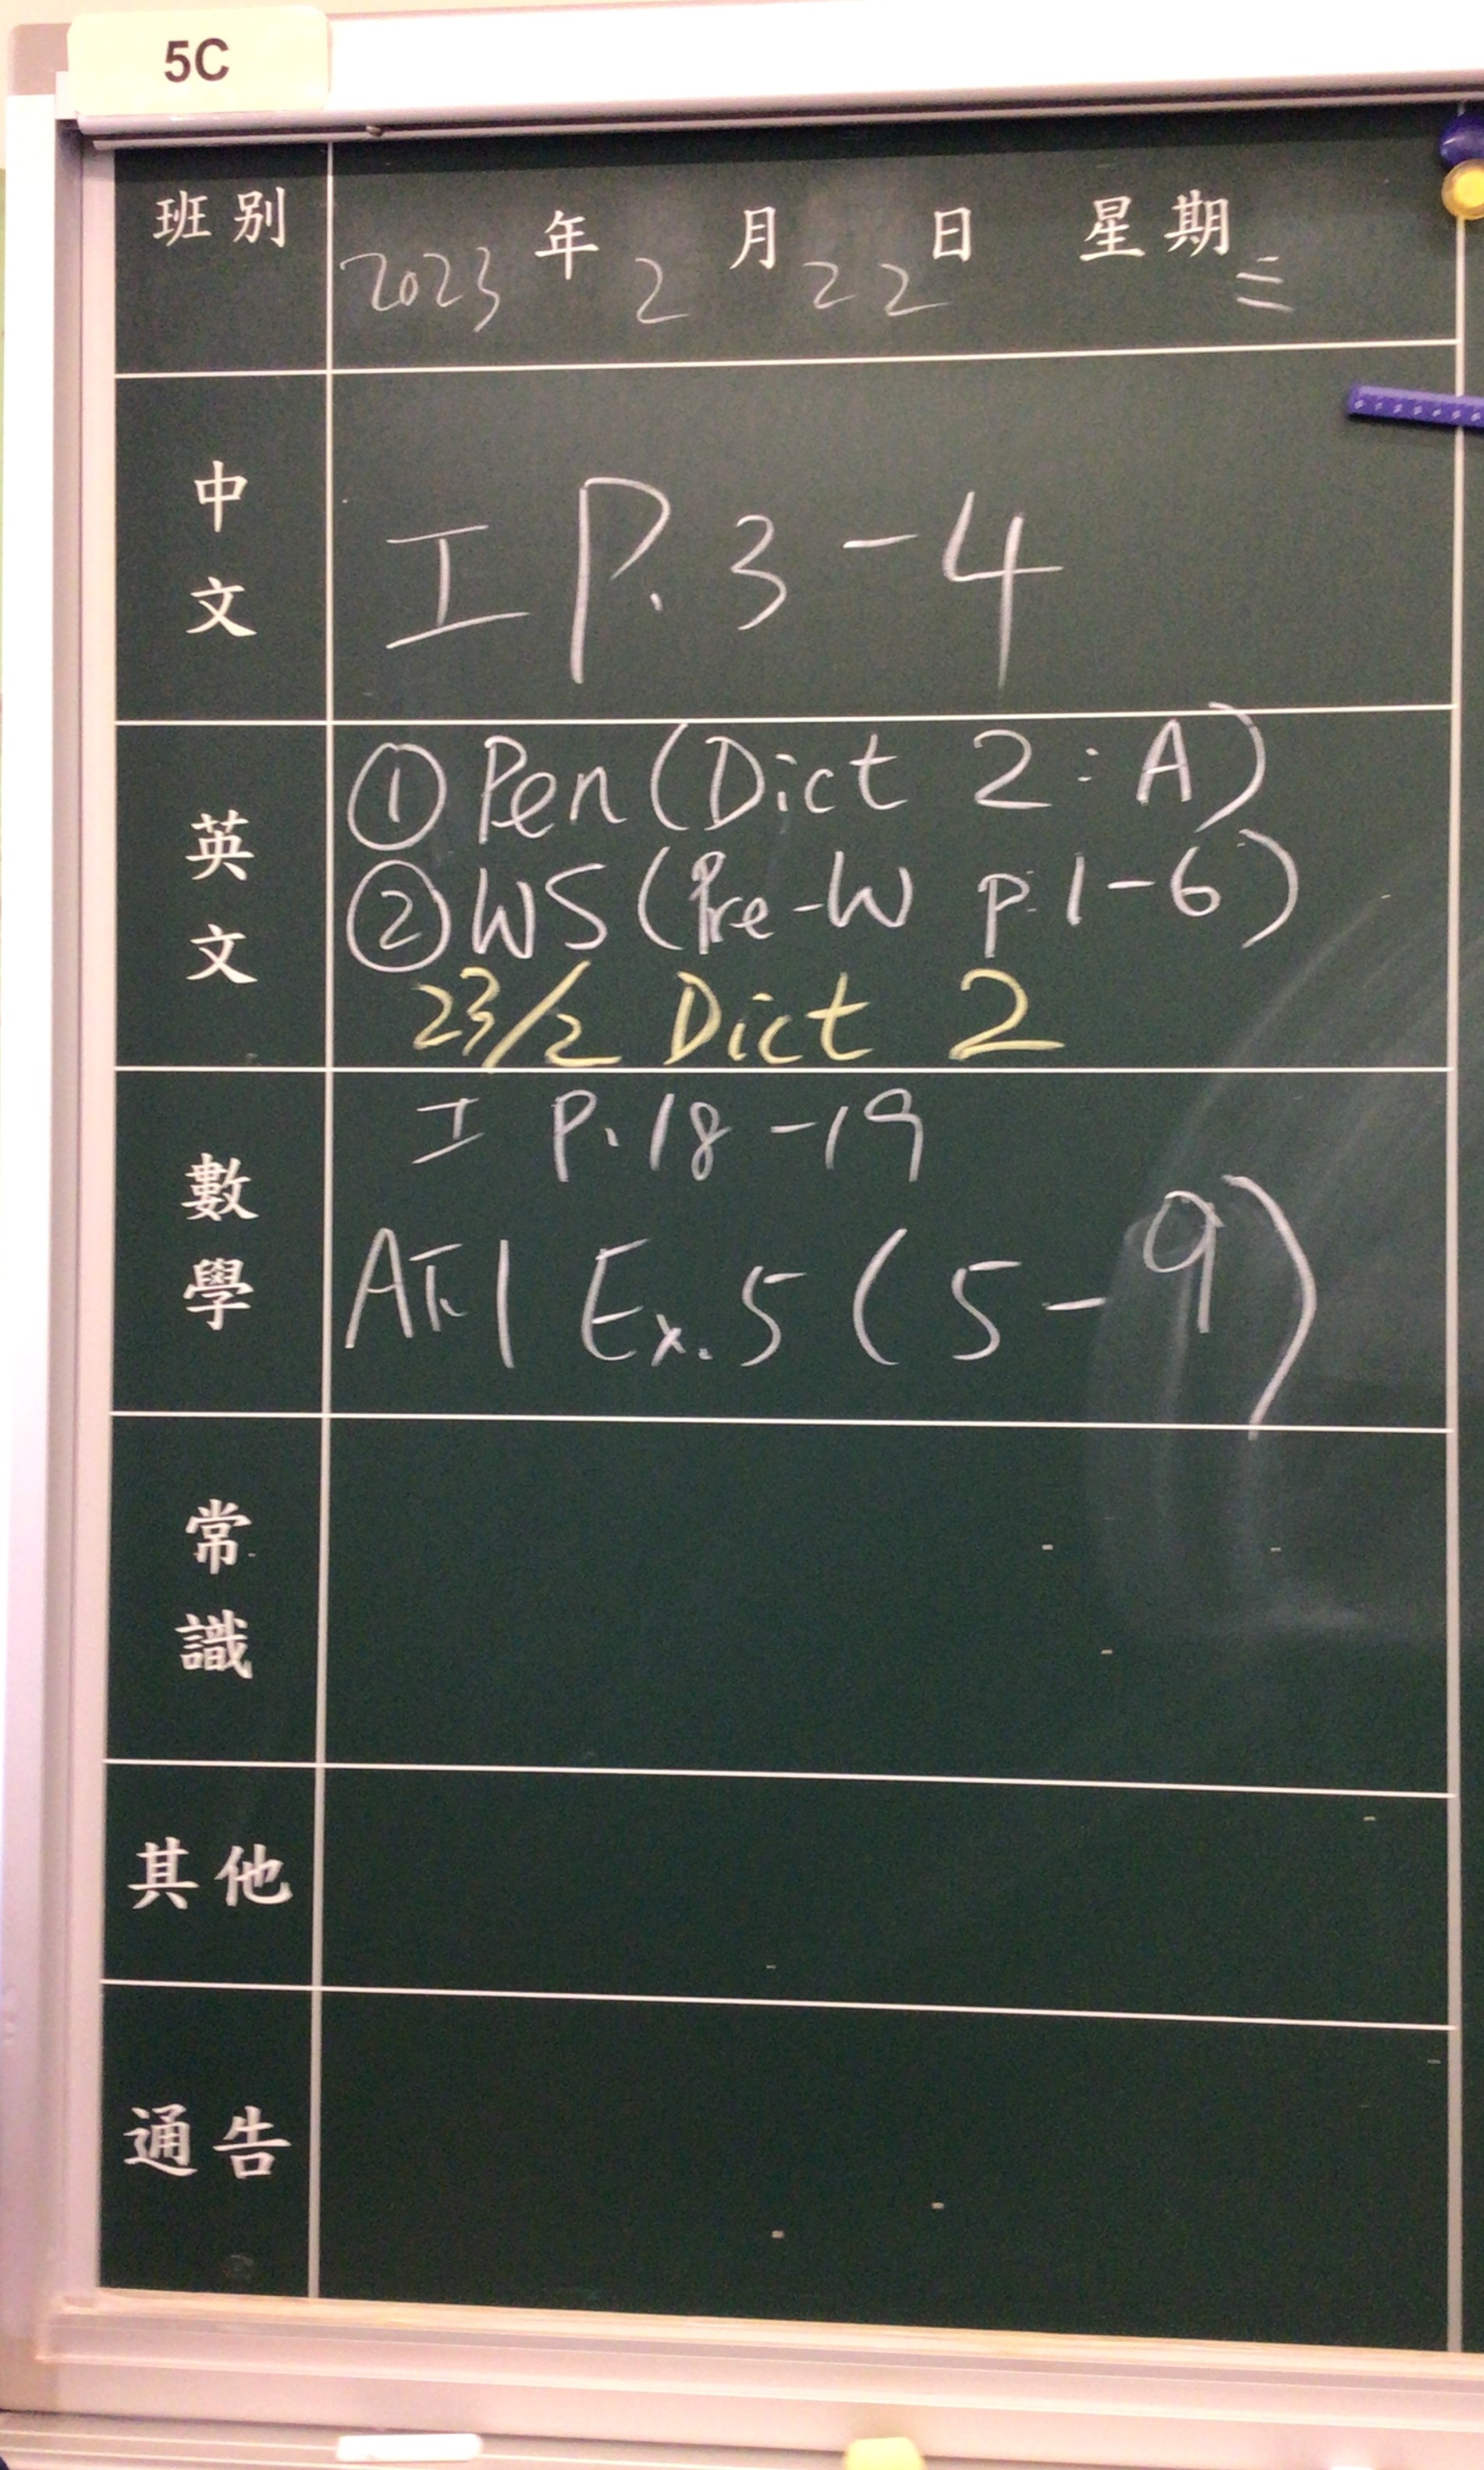 5C
班別 2023年2月22日 星期三
中文 工 P.3-4
英文 ① Pen (Dict 2: A)
② WS (Pre-W p.1-6)
23/2 Dict 2
數學 工 P.18-19
AT.1 Ex.5 (5-9)
常識
其他
通告